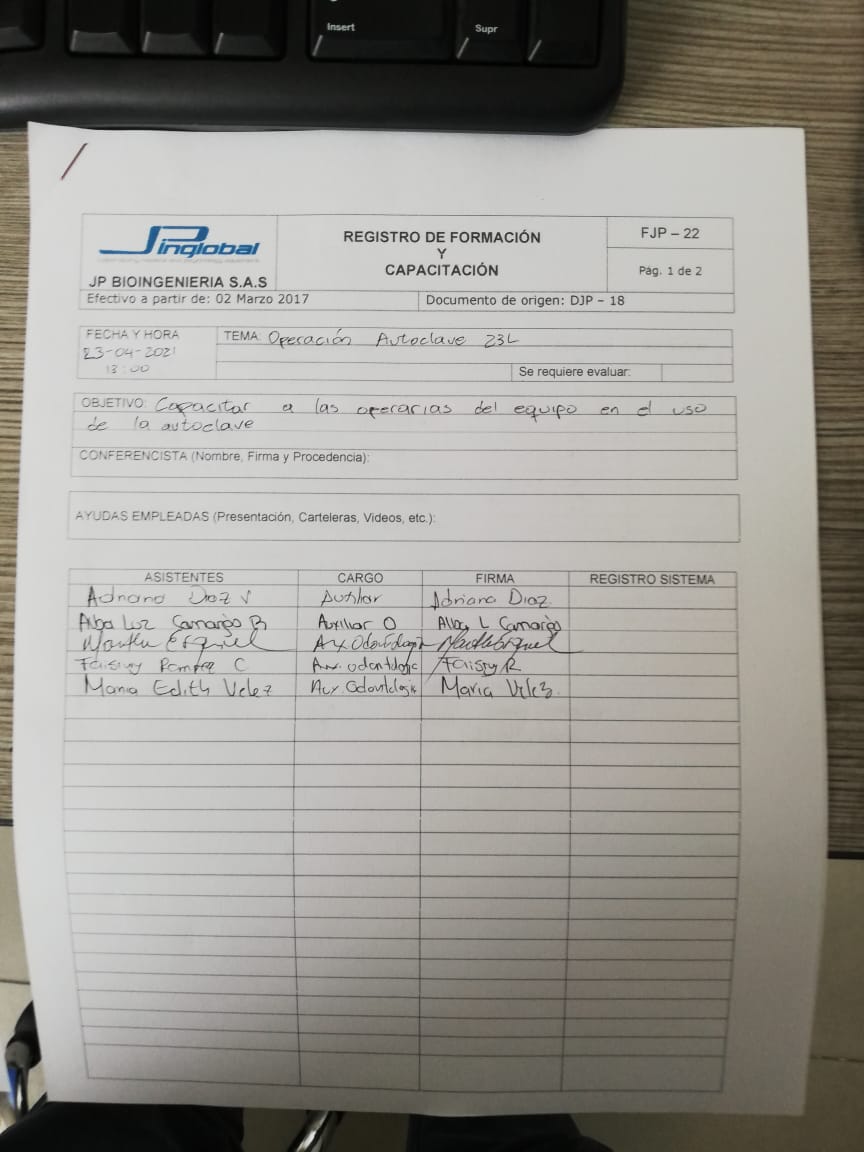 Insert
Supr
JP inglobal
JP BIOINGENIERIA S.A.S
REGISTRO DE FORMACIÓN
Y
CAPACITACIÓN
FJP – 22
Pág. 1 de 2
Efectivo a partir de: 02 Marzo 2017
Documento de origen: DJP – 18
FECHA Y HORA
23-04-2021
13:00
TEMA: Operación Autoclave 23L
Se requiere evaluar:
OBJETIVO: Capacitar a las operarias del equipo en el uso
de la autoclave
CONFERENCISTA (Nombre, Firma y Procedencia):
AYUDAS EMPLEADAS (Presentación, Carteleras, Videos, etc.):
ASISTENTES CARGO FIRMA REGISTRO SISTEMA
Adriana Diaz V Auxiliar Adriana Diaz
Alba Luz Camargo B Auxiliar O Alba L Camargo
Aux Odontologia
Ramirez C Aux. odontologic
Maria Edith Velez Aux. Odontologia Maria Velez.